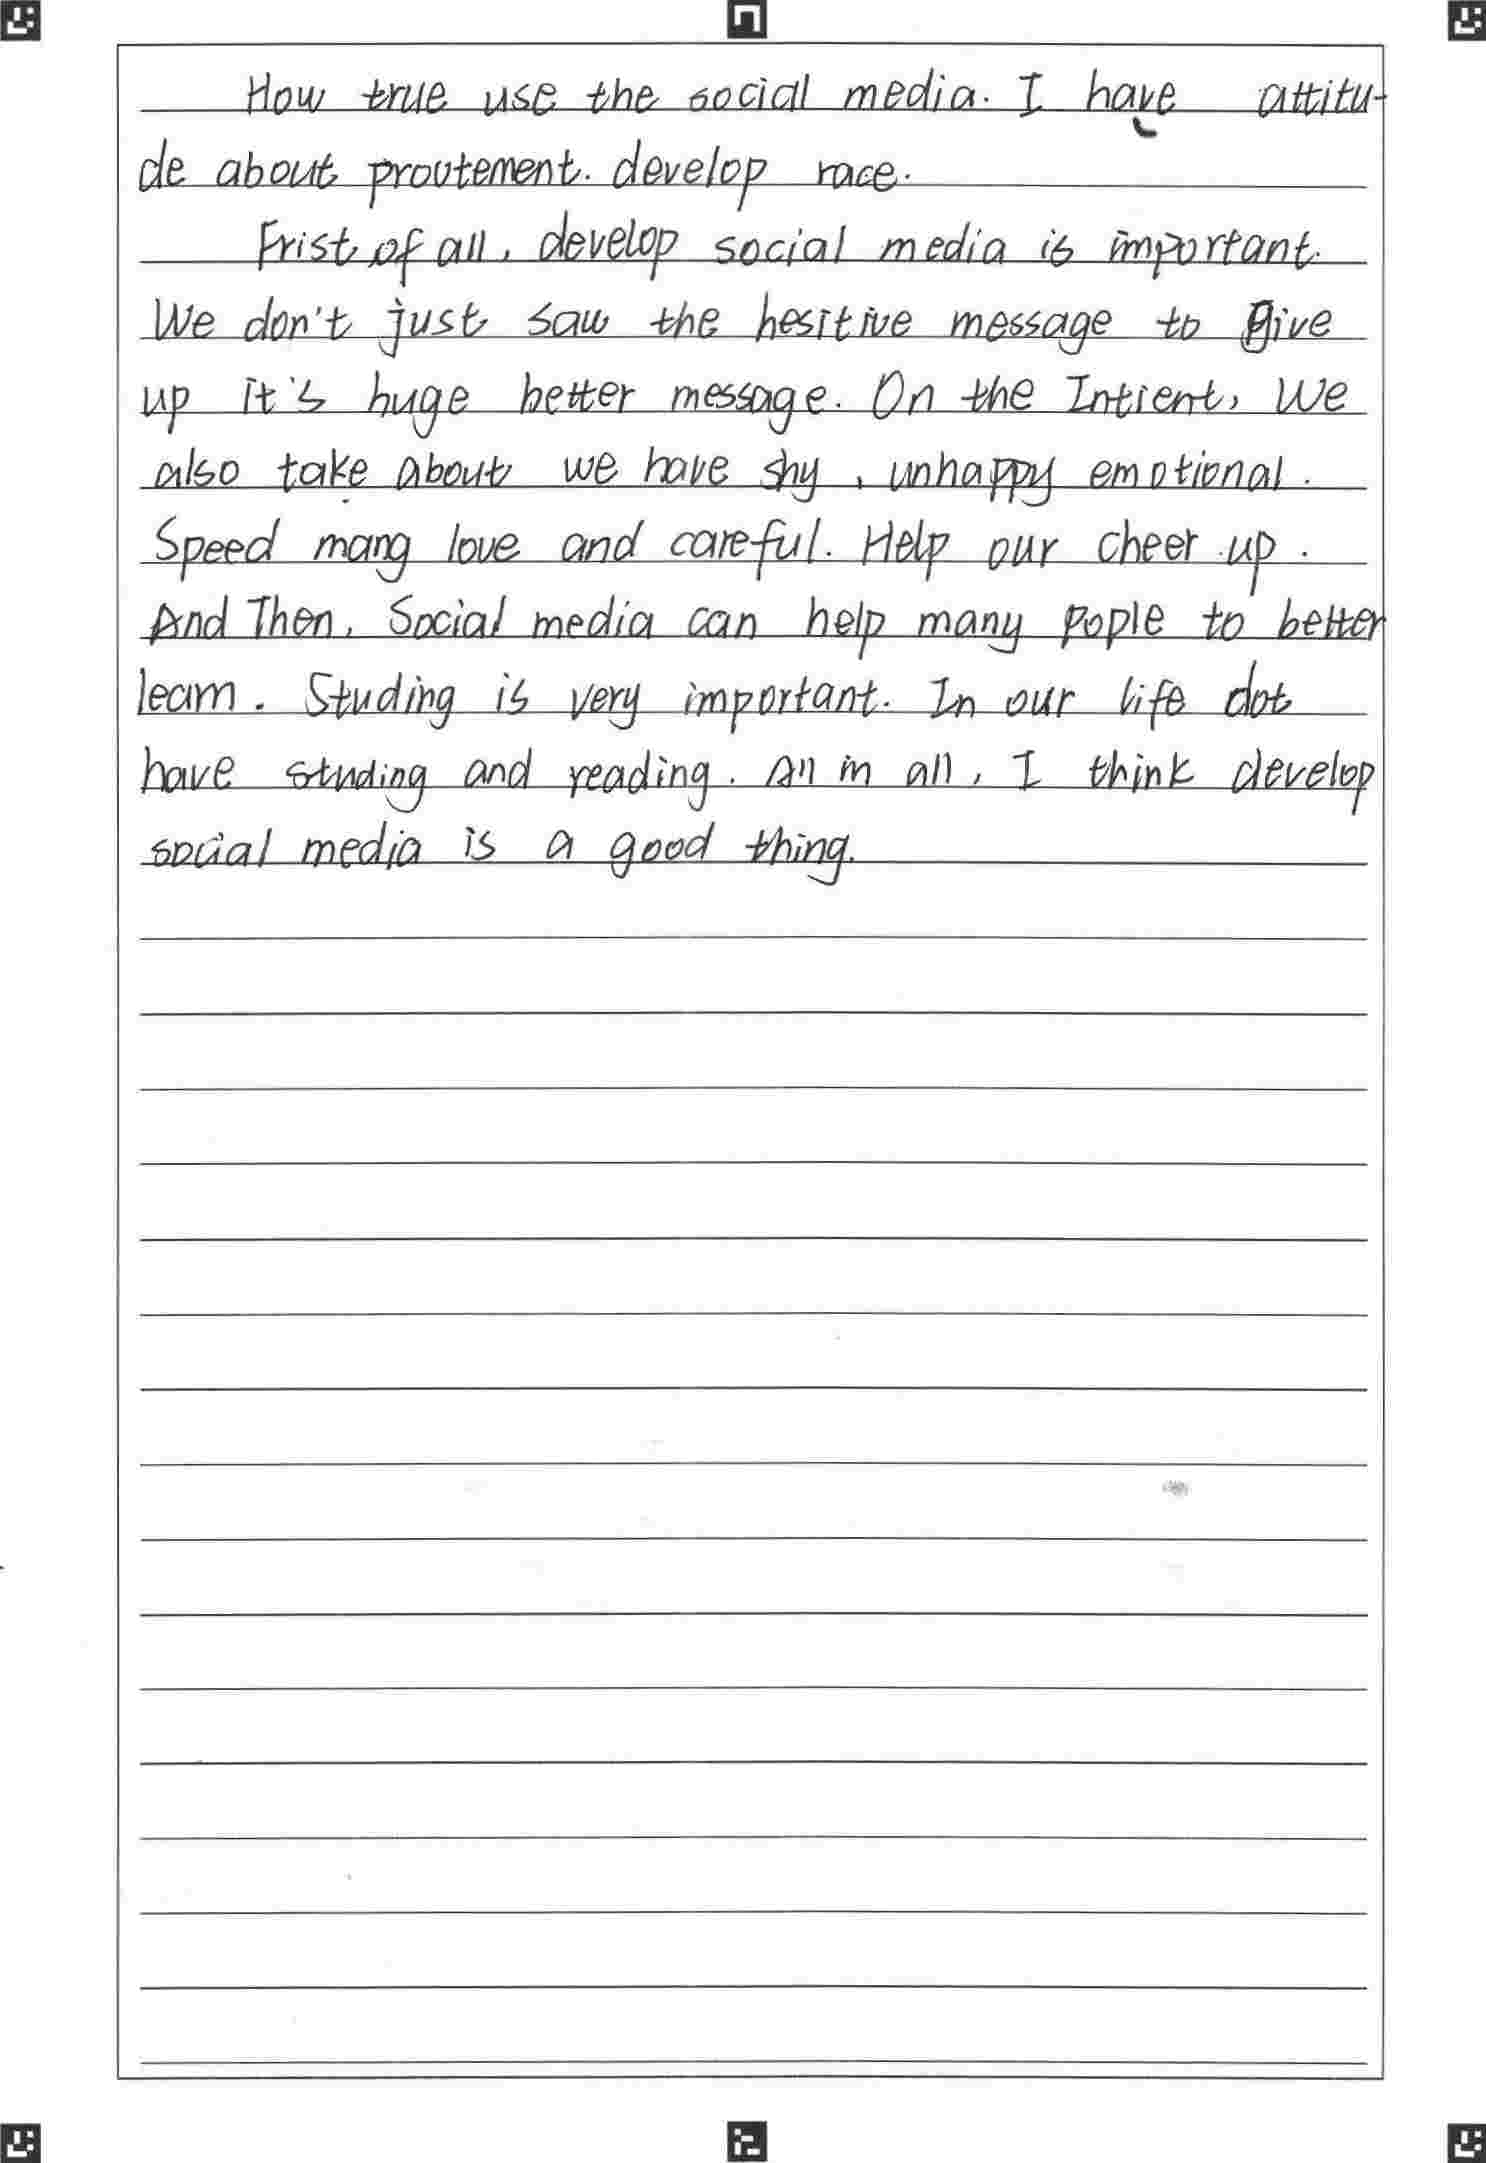 How true use the social media. I have attitu-
de about proutement. develop race.
Frist of all, develop social media is important.
We don't just saw the hesitive message to give
up it's huge better message. On the Intient, We
also take about we have shy, unhappy emotional.
Speed mang love and careful. Help our cheer up.
And Then, Social media can help many pople to better
learn. Studing is very important. In our life dot
have studing and reading. All in all, I think develop
social media is a good thing.